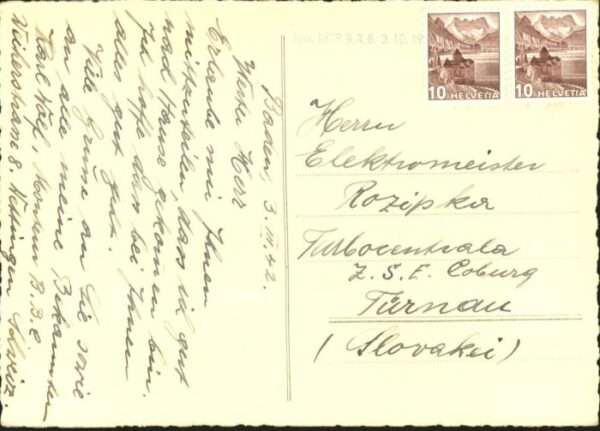 Baden, 3. III. 42.
Werter Herr
Erlaube mir Ihnen
mitzuteilen, dass ich gut
nach Hause gekommen bin.
Ich hoffe dass bei Ihnen
alles gut geht.
Viele Grüsse an Sie sowie
an alle meine Bekannten
Karl Wolf, Monteur B.B.C
8, Wettingen Schweiz.
10 HELVETIA
10 HELVETIA
Herrn
Elektromeister
Rozipka
Turbocentrala
Z.S.E. Coburg
Türnau
(Slovakei)